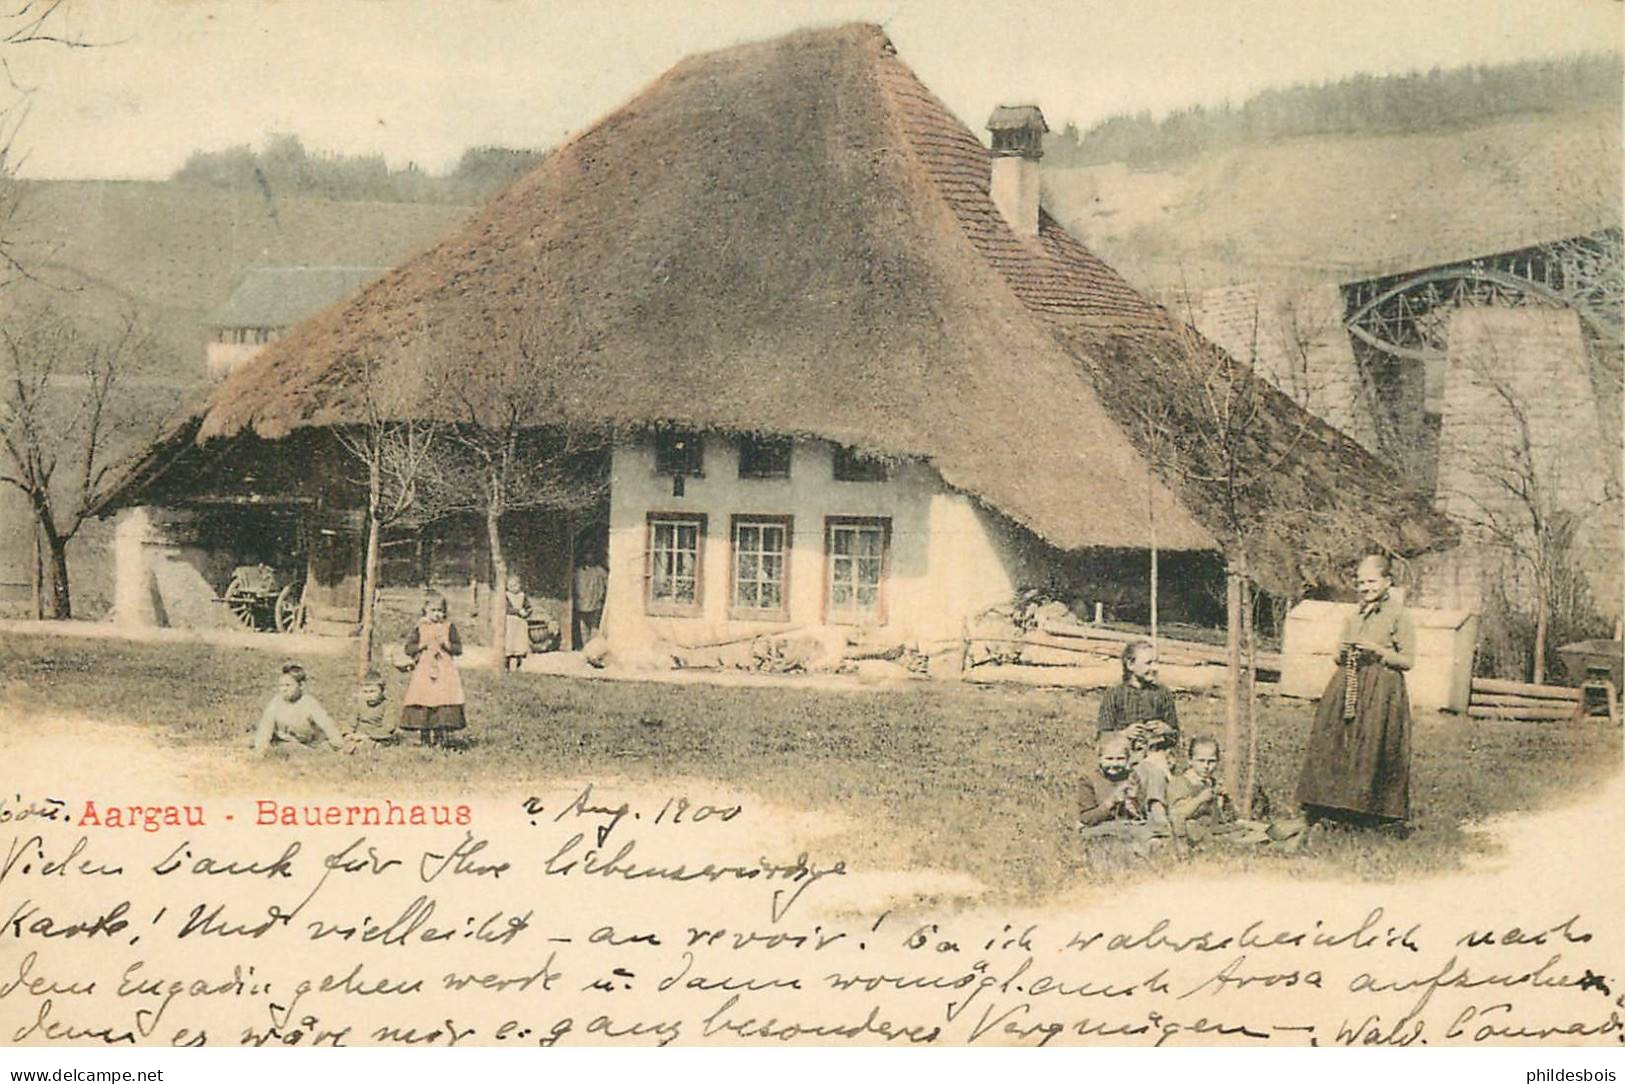 Aargau - Bauernhaus ? Aug. 1900
Vielen Dank für Ihre liebenswürdige
Karte! Und vielleicht - au revoir! Da ich wahrscheinlich nach
dem Engadin gehen werde u. dann womögl. auch Arosa aufzusuchen
denn es wäre mir e. ganz besonderes Vergnügen - Wald. Conrad
delcampe.net
phildesbois